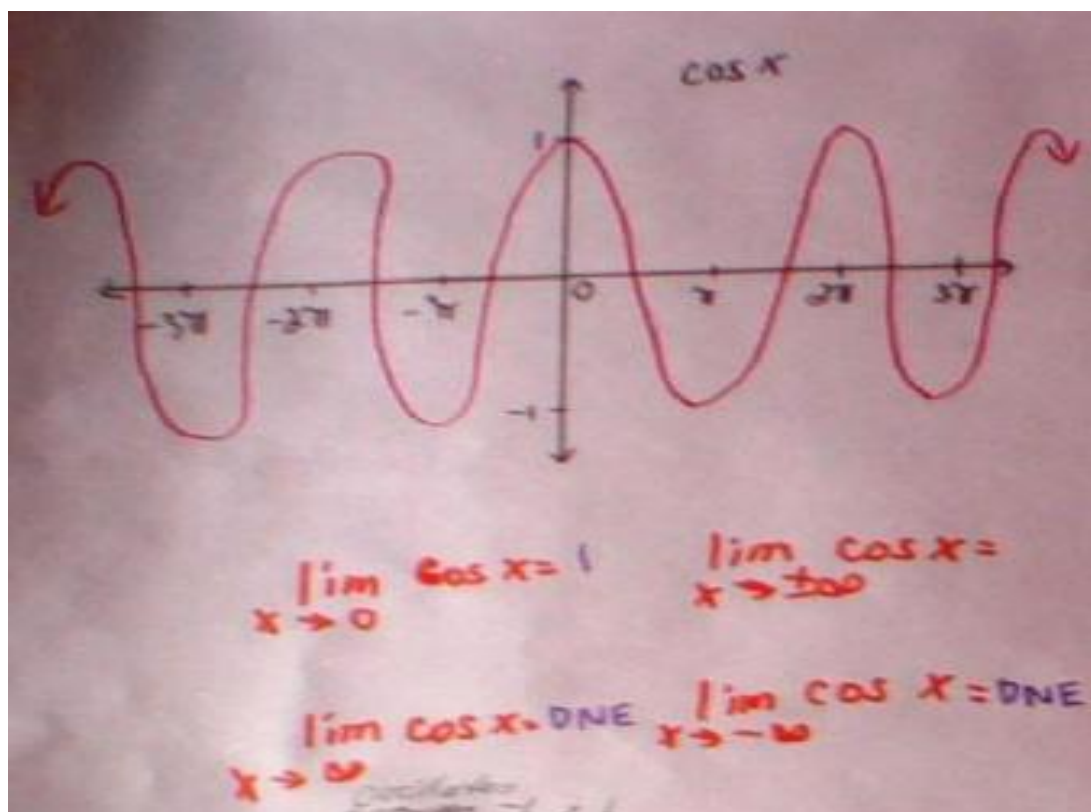 cos x
1
-3π -2π -π 0 π 2π 3π
-1
lim cos x = 1 lim cos x =
x → 0 x → ±∞
lim cos x = DNE lim cos x = DNE
x → ∞ x → -∞